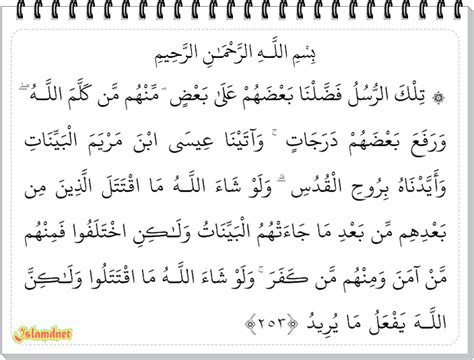 بِسْمِ اللَّهِ الرَّحْمَـٰنِ الرَّحِيمِ
۞ تِلْكَ الرُّسُلُ فَضَّلْنَا بَعْضَهُمْ عَلَىٰ بَعْضٍ ۘ مِّنْهُم مَّن كَلَّمَ اللَّـهُ ۖ
وَرَفَعَ بَعْضَهُمْ دَرَجَاتٍ ۚ وَآتَيْنَا عِيسَى ابْنَ مَرْيَمَ الْبَيِّنَاتِ
وَأَيَّدْنَاهُ بِرُوحِ الْقُدُسِ ۗ وَلَوْ شَاءَ اللَّـهُ مَا اقْتَتَلَ الَّذِينَ مِن
بَعْدِهِم مِّن بَعْدِ مَا جَاءَتْهُمُ الْبَيِّنَاتُ وَلَـٰكِنِ اخْتَلَفُوا فَمِنْهُم
مَّنْ آمَنَ وَمِنْهُم مَّن كَفَرَ ۚ وَلَوْ شَاءَ اللَّـهُ مَا اقْتَتَلُوا وَلَـٰكِنَّ
اللَّـهَ يَفْعَلُ مَا يُرِيدُ ﴿٢٥٣﴾
Islamdnet